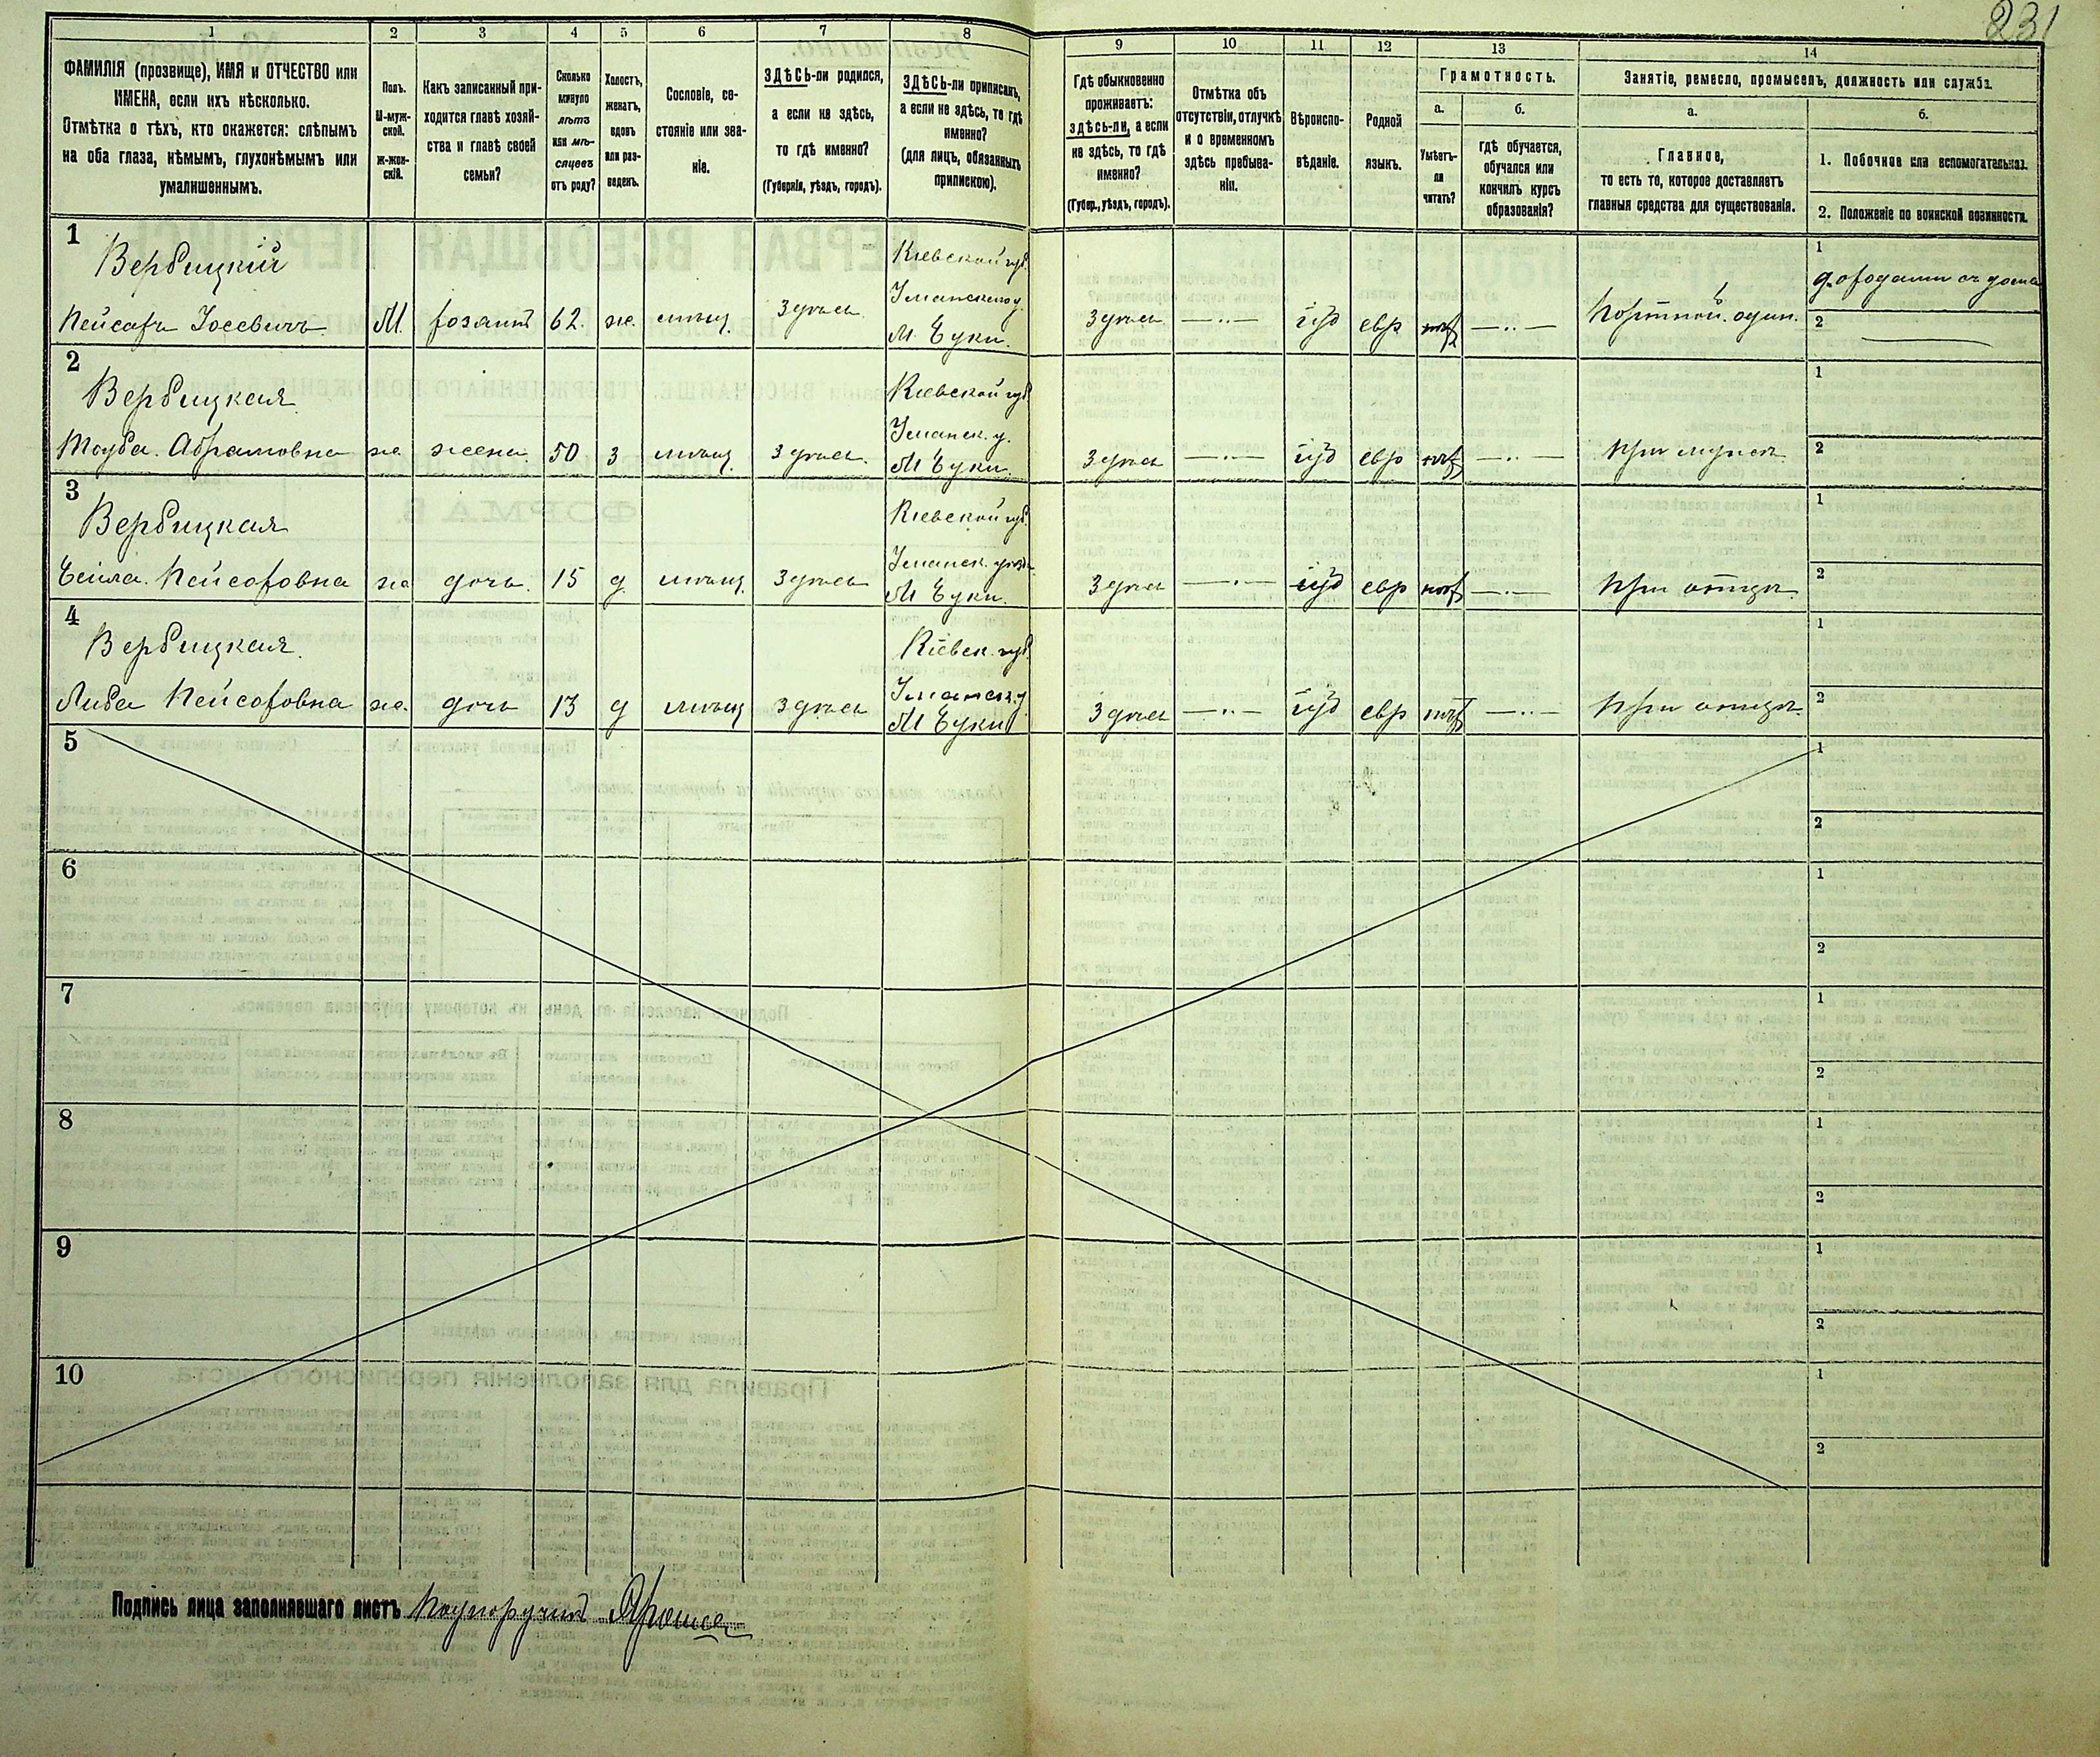 231
1 2 3 4 5 6 7 8 9 10 11 12 13 14
ФАМИЛІЯ (прозвище), ИМЯ и ОТЧЕСТВО или
ИМЕНА, если ихъ нѣсколько.
Отмѣтка о тѣхъ, кто окажется: слѣпымъ
на оба глаза, нѣмымъ, глухонѣмымъ или
умалишеннымъ.
Полъ.
М-муж-
ской.
Ж-жен-
скій.
Какъ записанный при-
ходится главѣ хозяй-
ства и главѣ своей
семьи?
Сколько
минуло
лѣтъ
или мѣ-
сяцевъ
отъ роду?
Холостъ,
женатъ,
вдовъ
или раз-
веденъ.
Сословіе, со-
стояніе или зва-
ніе.
ЗДѢСЬ-ли родился,
а если не здѣсь,
то гдѣ именно?
(Губернія, уѣздъ, городъ).
ЗДѢСЬ-ли приписанъ,
а если не здѣсь, то гдѣ
именно?
(для лицъ, обязанныхъ
припискою).
Гдѣ обыкновенно
проживаетъ:
здѣсь-ли, а если
не здѣсь, то гдѣ
именно?
(Губер., уѣздъ, городъ).
Отмѣтка объ
отсутствіи, отлучкѣ
и о временномъ
здѣсь пребыва-
ніи.
Вѣроиспо-
вѣданіе.
Родной
языкъ.
Грамотность.
а.
Умѣетъ-
ли
читать?
б.
гдѣ обучается,
обучался или
кончилъ курсъ
образованія?
Занятіе, ремесло, промыселъ, должность или служба.
а.
Главное,
то есть то, которое доставляетъ
главныя средства для существованія.
б.
1. Побочное или вспомогательное.
2. Положеніе по воинской повинности.
1
Вербицкій Кіевской губ. 1
Уманскаго у.
Пейсахъ Іосевичъ М. хозяинъ 62. ж. мѣщ. Здѣсь. М. Буки. Здѣсь іуд евр Портной. один. 2
2
Вербицкая Кіевской губ 1
Уманск. у.
Тауба. Абрамовна ж. жена. 50 з мѣщ. Здѣсь. М Буки. Здѣсь іуд евр при мужѣ 2
3
Вербицкая Кіевской губ. 1
Уманск. уѣзд.
Пейсаховна ж дочь. 15 д. мѣщ. Здѣсь М Буки. Здѣсь іуд евр при отцѣ 2
4
Вербицкая. Кіевск. губ. 1
Уманск. у
Либа Пейсаховна ж. дочь 13 д мѣщ Здѣсь М Буки Здѣсь іуд евр при отцѣ. 2
5 1
2
6 1
2
7 1
2
8 1
2
9 1
2
10 1
2
Подпись лица заполнявшаго листъ Подпоручикъ